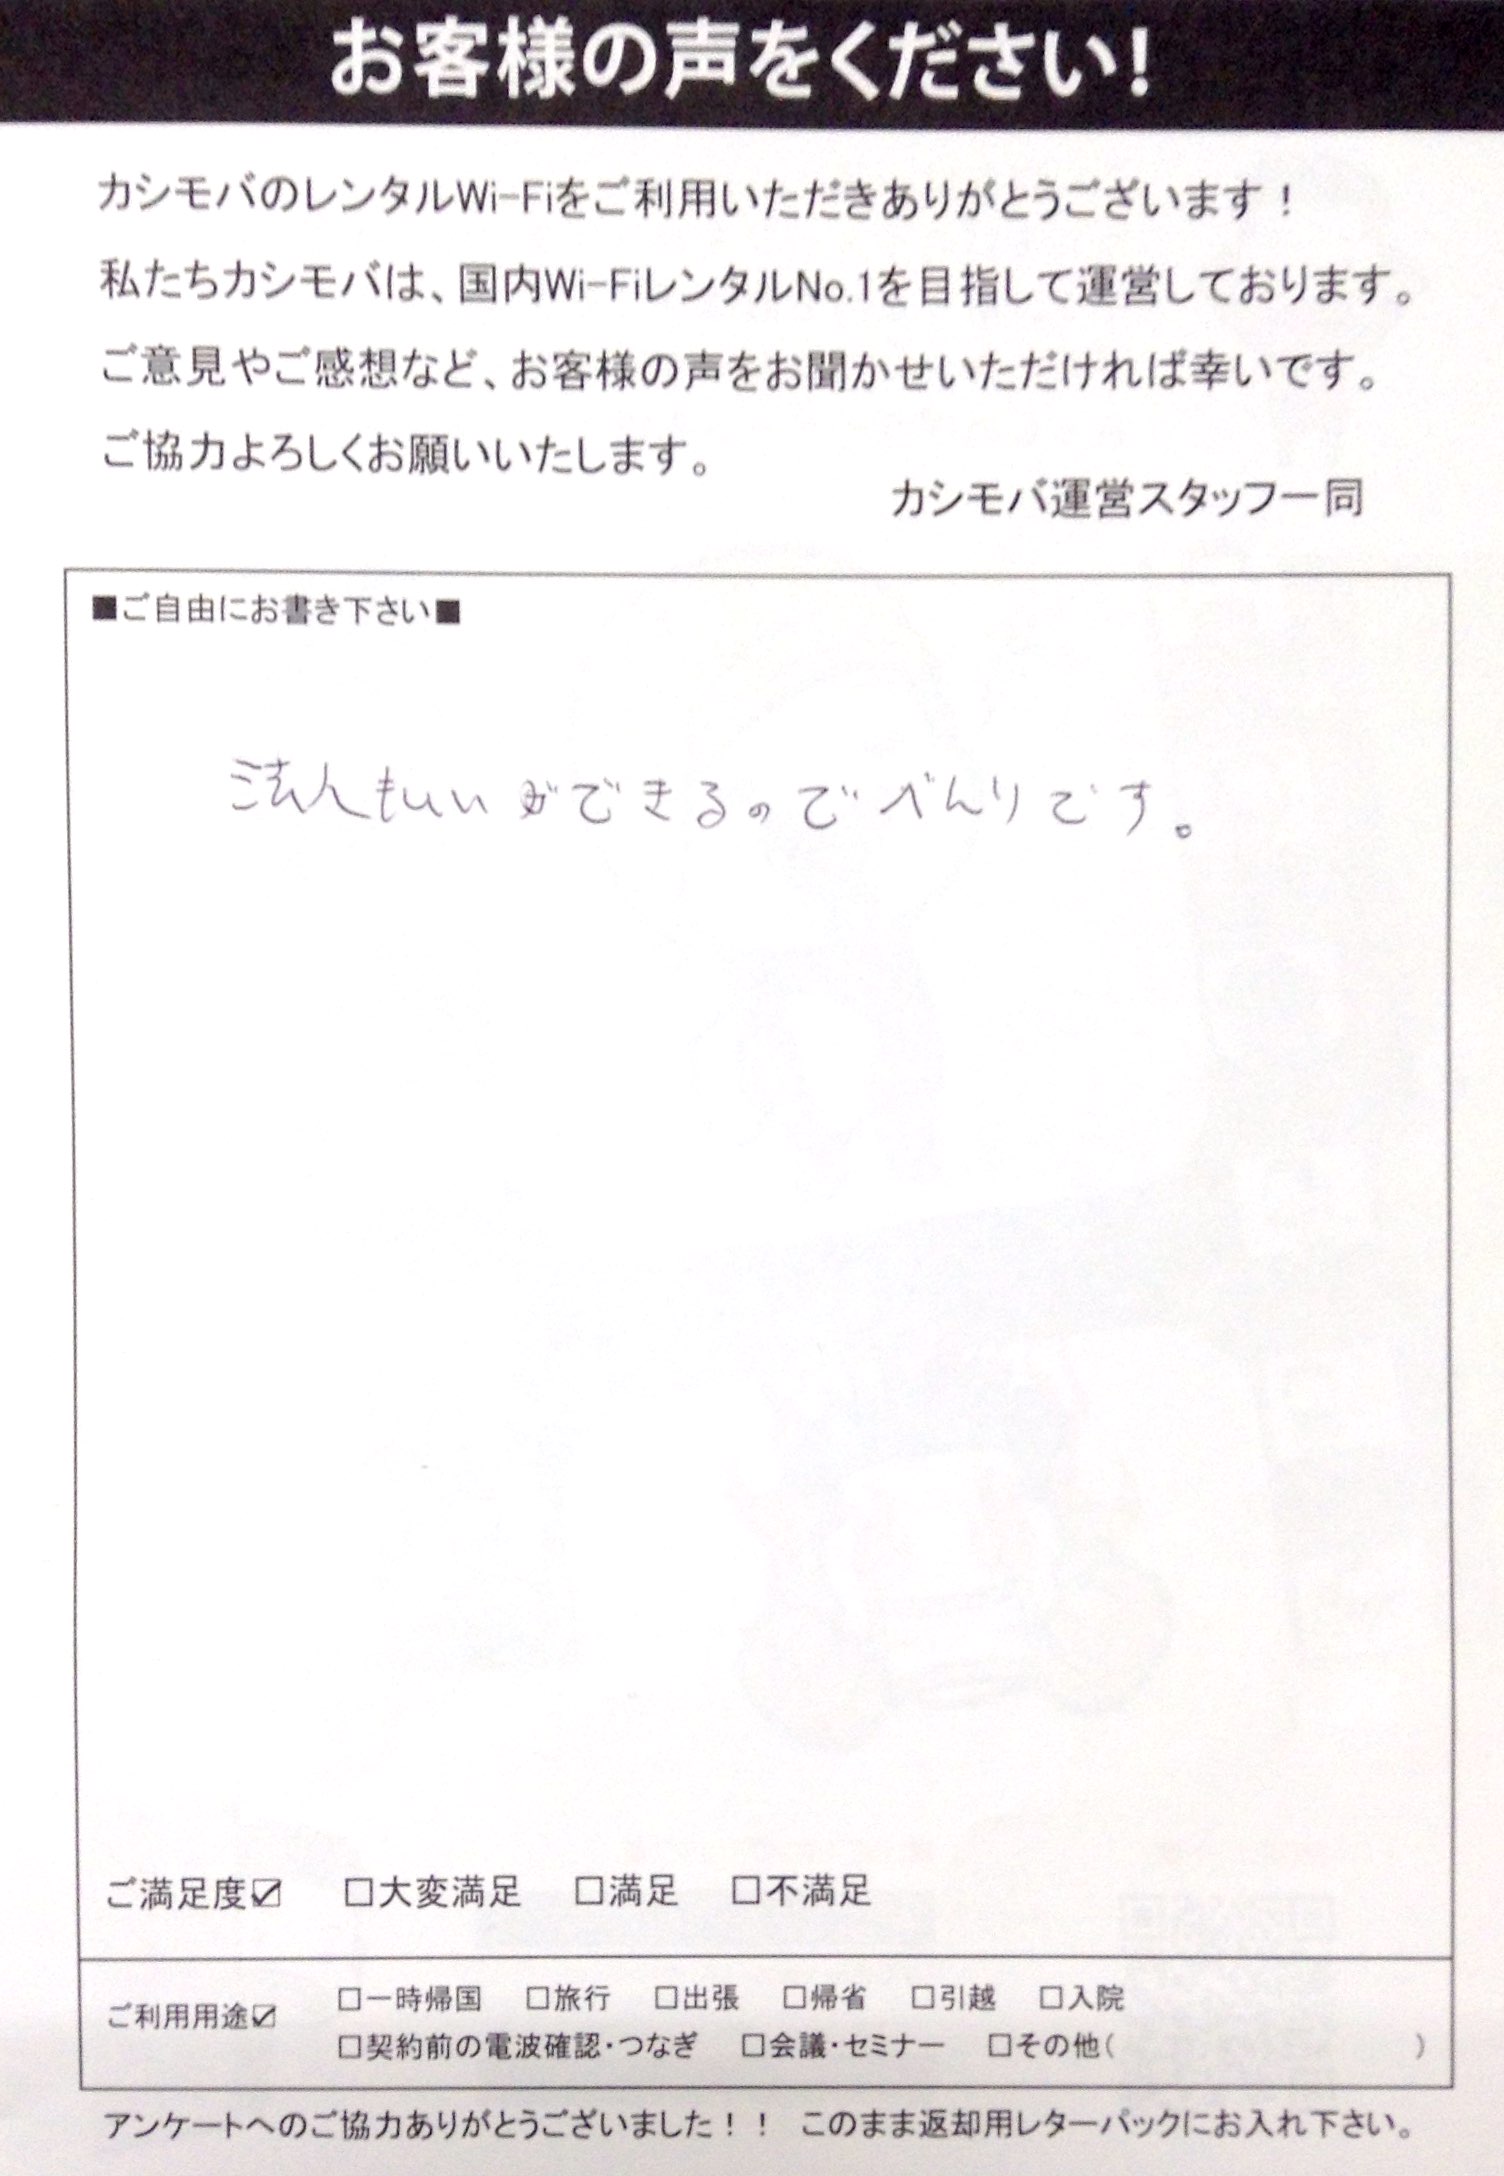 お客様の声をください!
カシモバのレンタルWi-Fiをご利用いただきありがとうございます！
私たちカシモバは、国内Wi-FiレンタルNo.1を目指して運営しております。
ご意見やご感想など、お客様の声をお聞かせいただければ幸いです。
ご協力よろしくお願いいたします。
カシモバ運営スタッフ一同
■ご自由にお書き下さい■
法人もできるのでべんりです。
ご満足度☑ □大変満足 □満足 □不満足
ご利用用途☑ □一時帰国 □旅行 □出張 □帰省 □引越 □入院
□契約前の電波確認・つなぎ □会議・セミナー □その他( )
アンケートへのご協力ありがとうございました！！ このまま返却用レターパックにお入れ下さい。